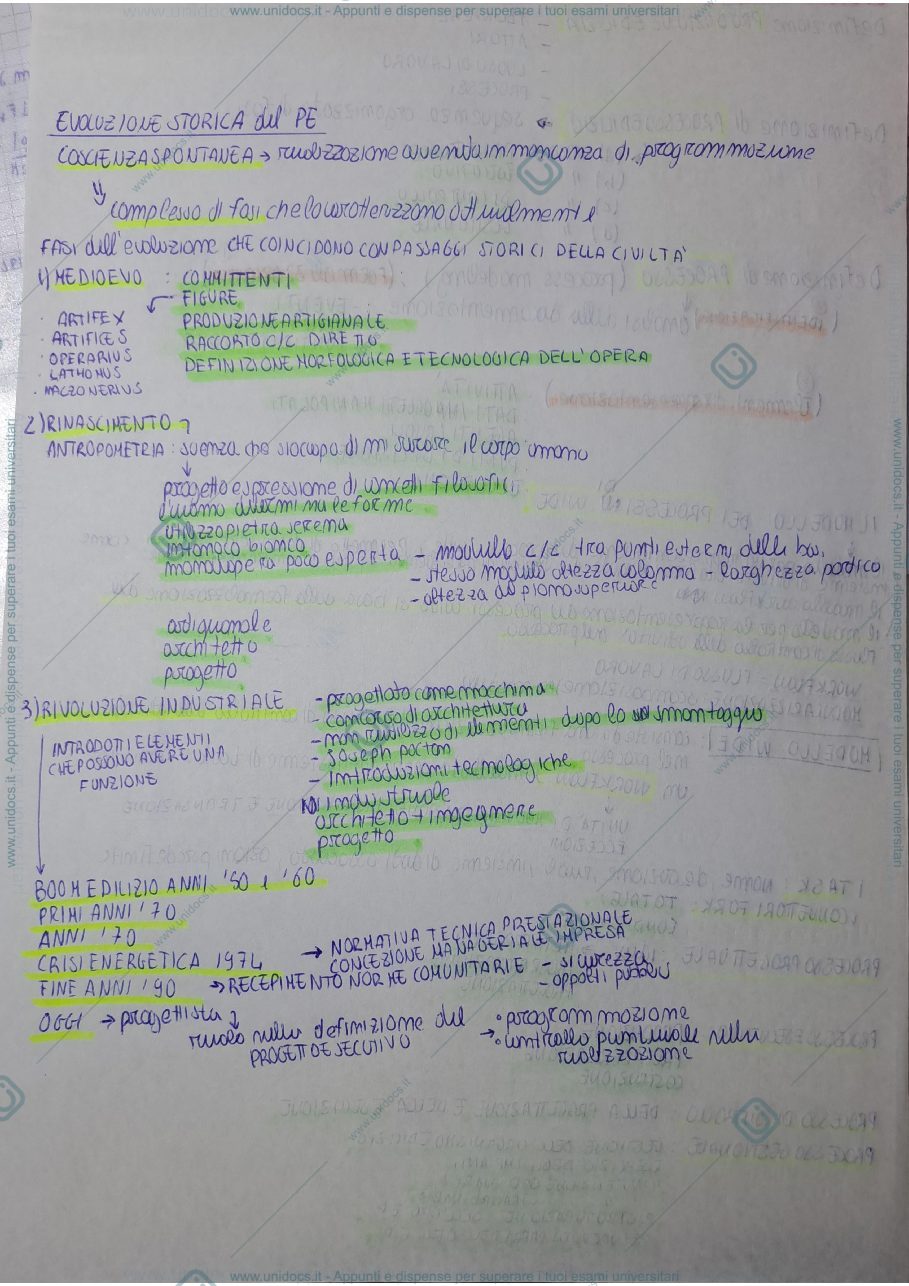 www.unidocs.it - Appunti e dispense per superare i tuoi esami universitari
EVOLUZIONE STORICA del PE
COSCIENZA SPONTANEA → realizzazione avvenuta in mancanza di programmazione
complesso di fasi che lo caratterizzano attualmente
FASI dell'evoluzione CHE COINCIDONO CON PASSAGGI STORICI DELLA CIVILTÀ
1) MEDIOEVO : COMMITTENTI
FIGURE
· ARTIFEX
· ARTIFICES
· OPERARIUS
· LATHOMUS
PRODUZIONE ARTIGIANALE
RACCORTO C/C DIRETTO
DEFINIZIONE MORFOLOGICA E TECNOLOGICA DELL'OPERA
2) RINASCIMENTO
ANTROPOMETRIA : scienza che si occupa di misurare il corpo umano
progetto espressione di concetti filosofici
l'uomo determina le forme
utilizzo pietra serena
intonaco bianco
manodopera poco esperta - modulo c/c tra punti esterni delle
- stesso modulo altezza colonna - larghezza portico
- altezza del piano superiore
artigianale
architetto
progetto
3) RIVOLUZIONE INDUSTRIALE - progettato come macchina
- concorso di architettura
- non riutilizzo di elementi dopo lo smontaggio
- Joseph pacton
- introduzioni tecnologiche
industriale
architetto + ingegnere
progetto
INTRODOTTI ELEMENTI
CHE POSSONO AVERE UNA
FUNZIONE
BOOM EDILIZIO ANNI '50 e '60
PRIMI ANNI '70
ANNI '70
CRISI ENERGETICA 1974 → NORMATIVA TECNICA PRESTAZIONALE
CONCEZIONE MANAGERIALE IMPRESA
FINE ANNI '90 → RECEPIMENTO NORME COMUNITARIE - sicurezza
- appalti pubblici
OGGI → progettista
ruolo nella definizione del
PROGETTO ESECUTIVO
→ • programmazione
• controllo puntuale nella
realizzazione
www.unidocs.it - Appunti e dispense per superare i tuoi esami universitari